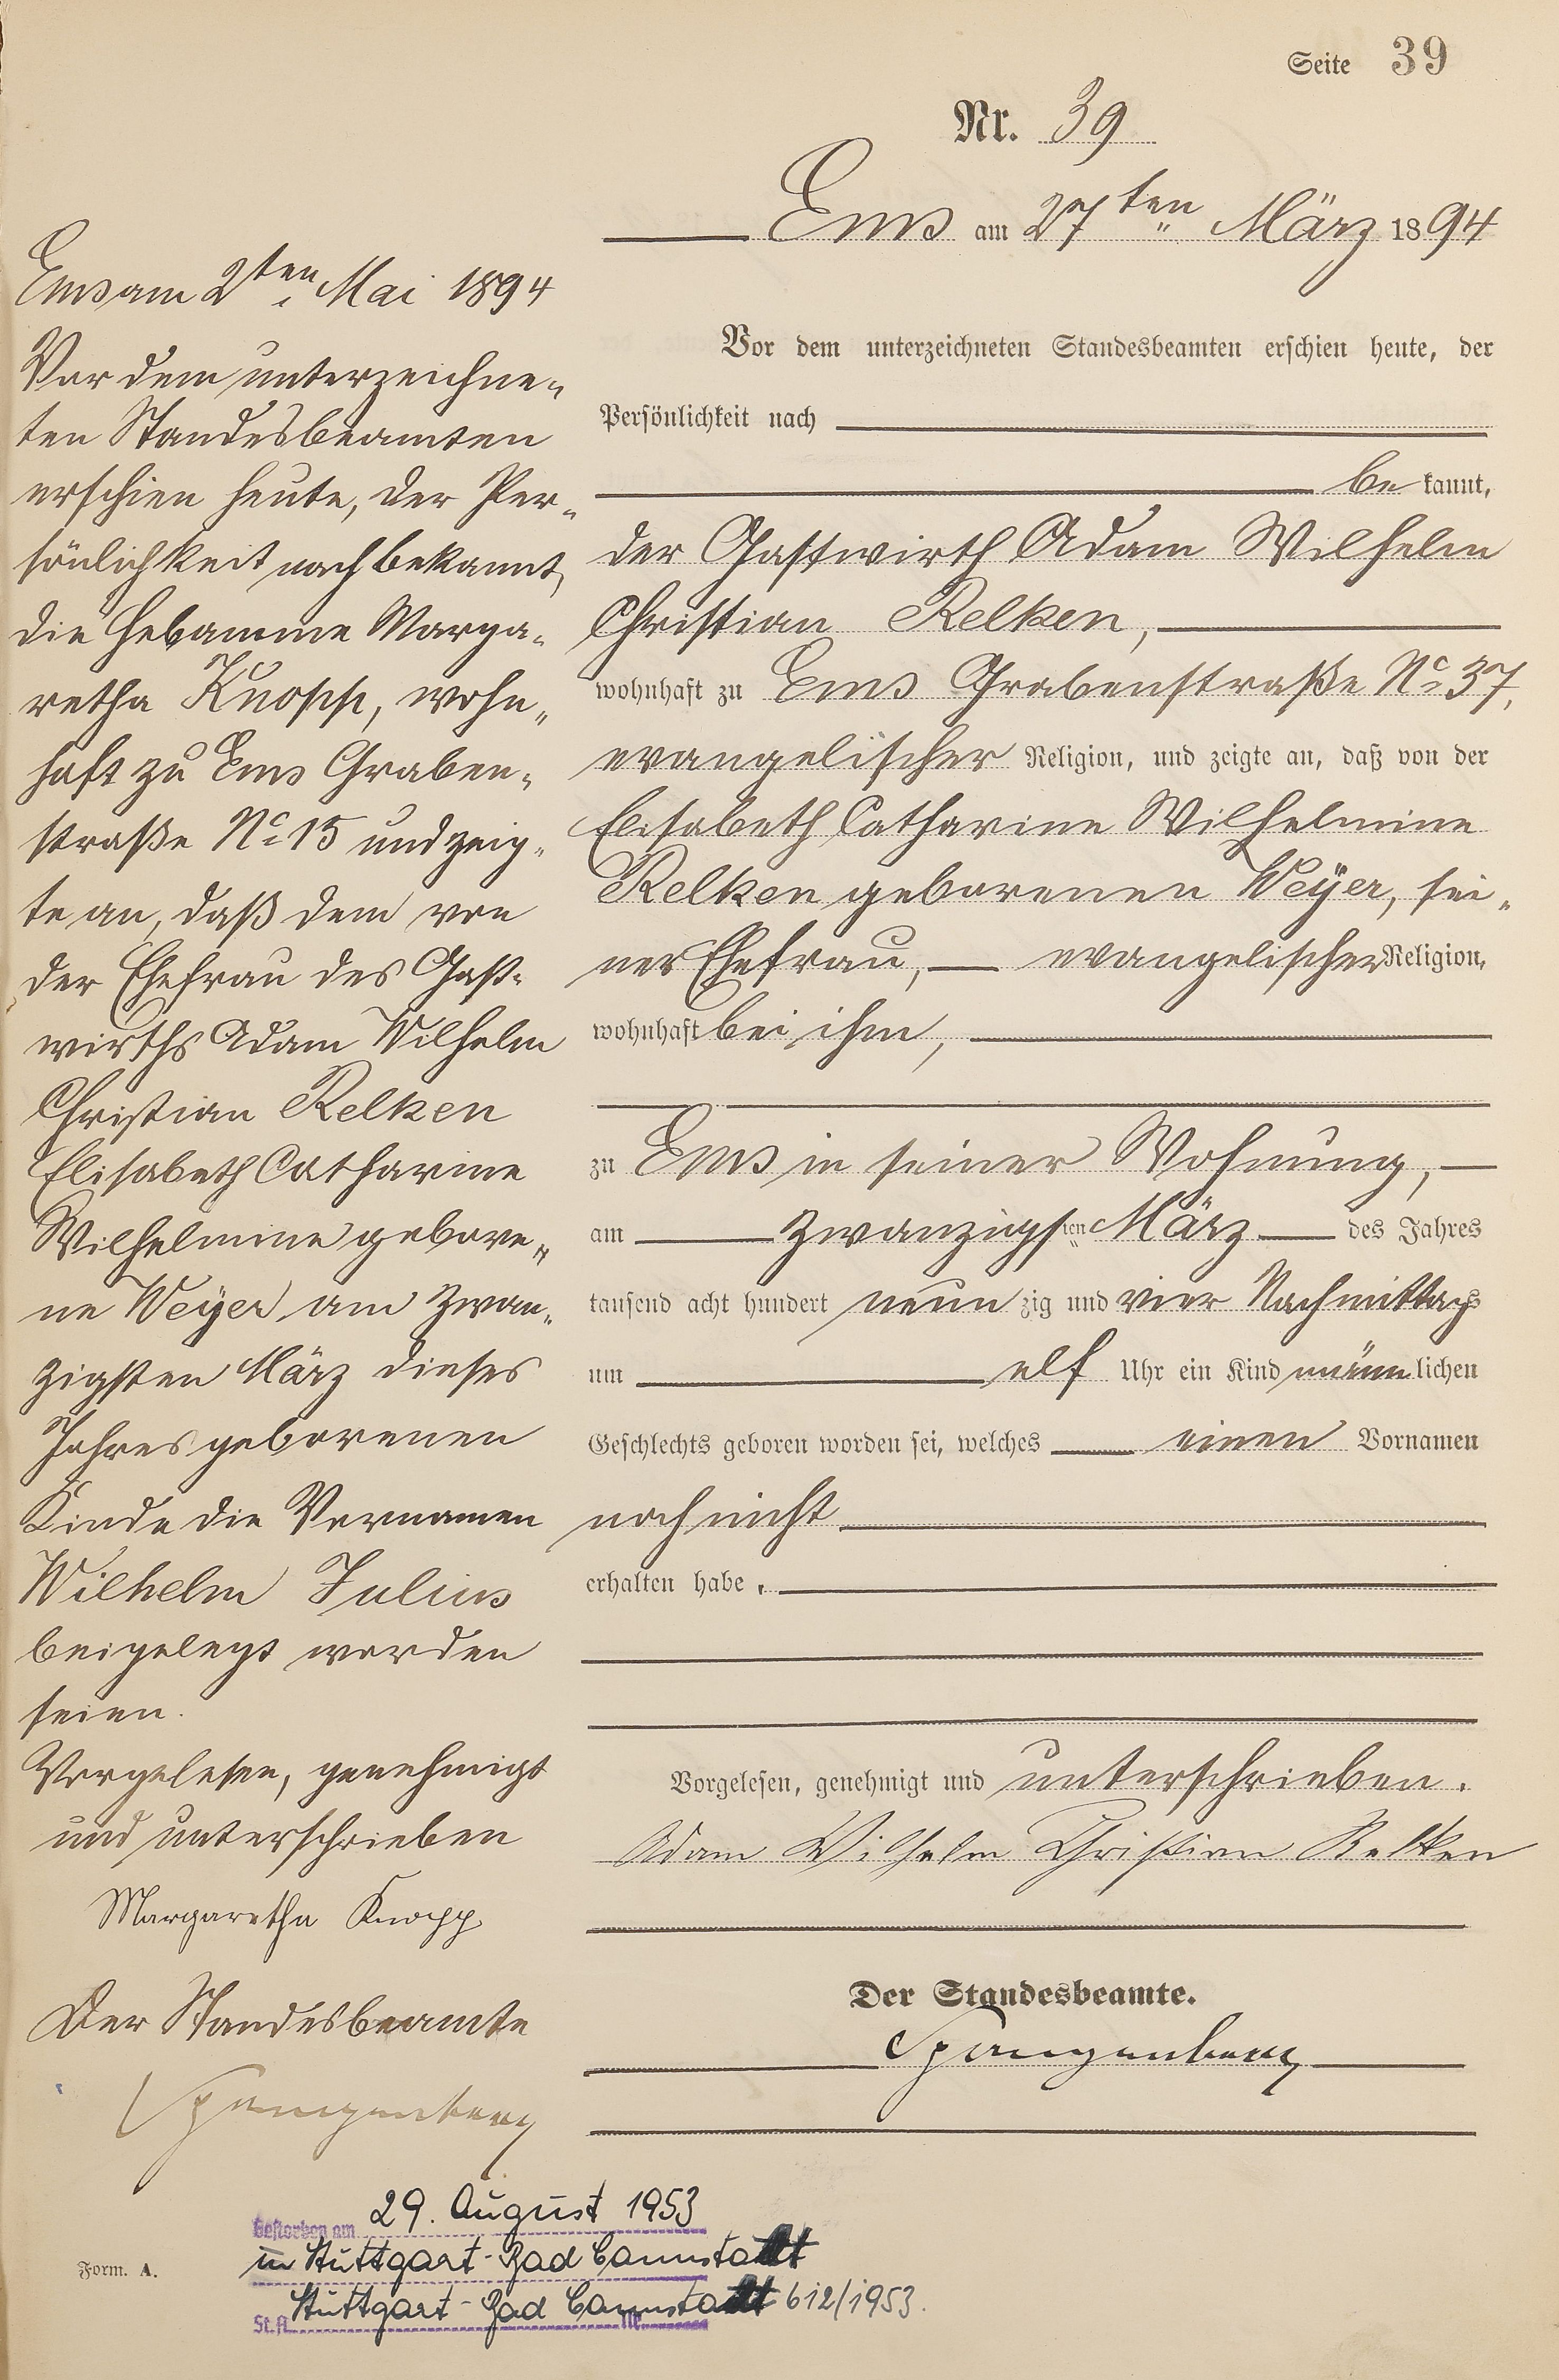 Seite 39
Nr. 39
Ems am 27ten März 1894
Vor dem unterzeichneten Standesbeamten erschien heute, der
Persönlichkeit nach
be kannt,
der Gastwirth Adam Wilhelm
Christian Relken,
wohnhaft zu Ems Grabenstraße No 37,
evangelischer Religion, und zeigte an, daß von der
Elisabeth Catharine Wilhelmine
Relken geborenen Weÿer, sei-
ner Ehefrau, evangelischer Religion,
wohnhaft bei ihm,
zu Ems in seiner Wohnung,
am zwanzigsten März des Jahres
tausend acht hundert neun zig und vier Nachmittags
um elf Uhr ein Kind männlichen
Geschlechts geboren worden sei, welches einen Vornamen
noch nicht
erhalten habe.
Vorgelesen, genehmigt und unterschrieben.
Adam Wilhelm Christian Relken
Der Standesbeamte.
Spangenberg
Ems am 2ten Mai 1894
Vor dem unterzeichne-
ten Standesbeamten
erschien heute, der Per-
sönlichkeit nach bekannt,
die Hebamme Marga-
retha Knopp, wohn-
haft zu Ems Graben-
straße No 15 und zeig-
te an, daß dem von
der Ehefrau des Gast-
wirths Adam Wilhelm
Christian Relken
Elisabeth Catharine
Wilhelmine gebore-
ne Weÿer am zwan-
zigsten März dieses
Jahres geborenen
Kinde die Vornamen
Wilhelm Julius
beigelegt worden
seien.
Vorgelesen, genehmigt
und unterschrieben
Margaretha Knopp
Der Standesbeamte
Spangenberg
Gestorben am 29. August 1953
in Stuttgart-Bad Cannstatt
St.A. Stuttgart-Bad Cannstatt Nr. 612/1953.
Form. A.